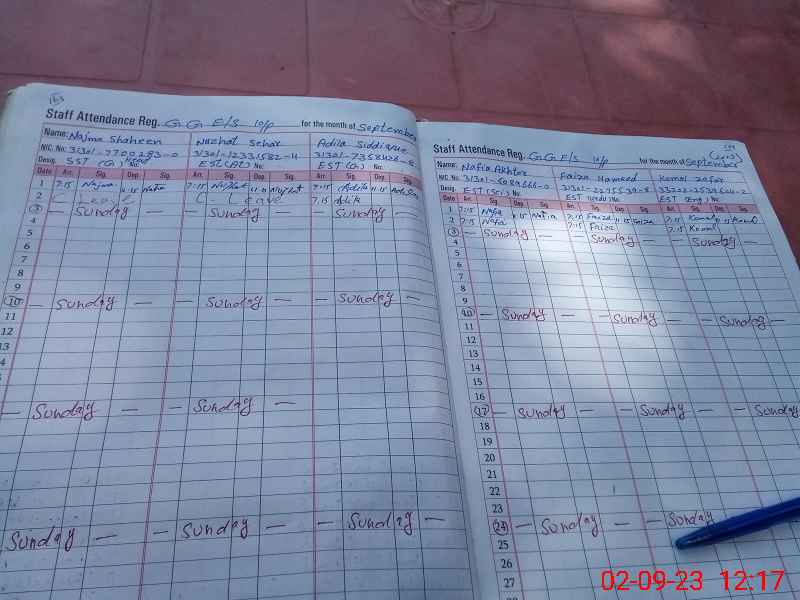 Staff Attendance Reg. G G E/S 10/p for the month of September
Name: Najma Shaheen Nuzhat Sehar Adila Siddique
N/C. No:
Desig. SST (G) No: EST (AT) No: EST (G) No:
Date Arr. Sig. Dep. Sig. Arr. Sig. Dep. Sig. Arr. Sig. Dep. Sig.
1 7:15 Najma 11:15 7:15 Nuzhat Nuzhat 7:15 Adila 11:15
2 C Leave C - Leave 7:15 Adila
3 — Sunday — — Sunday — — Sunday —
4
5
6
7
8
9
10 — Sunday — — Sunday — — Sunday —
11
12
13
— Sunday — — Sunday —
Sunday — — Sunday — — Sunday —
Staff Attendance Reg. G.G E/S 10/p for the month of September
Name: Nafia Akhtar Faiza Hameed Komal Zafar
N/C. No:
Desig. EST (Sci) No. EST (Urdu) No. EST Eng) No.
Date Arr. Sig. Dep. Sig. Arr. Sig. Dep. Sig. Arr. Sig. Dep. Sig.
1 7:15 Nafia 11:15 Nafia 7:15 Faiza 11:15 Faiza 7:15 Komal 11:15 Komal
2 7:15 Nafia 7:15 Faiza 7:15 Komal
3 — Sunday — — Sunday — — Sunday —
4
5
6
7
8
9
10 — Sunday — — Sunday — — Sunday —
11
12
13
14
15
16
17 — Sunday — — Sunday — — Sunday
18
19
20
21
22
23
24 — Sunday — — Sunday
25
26
27
02-09-23 12:17